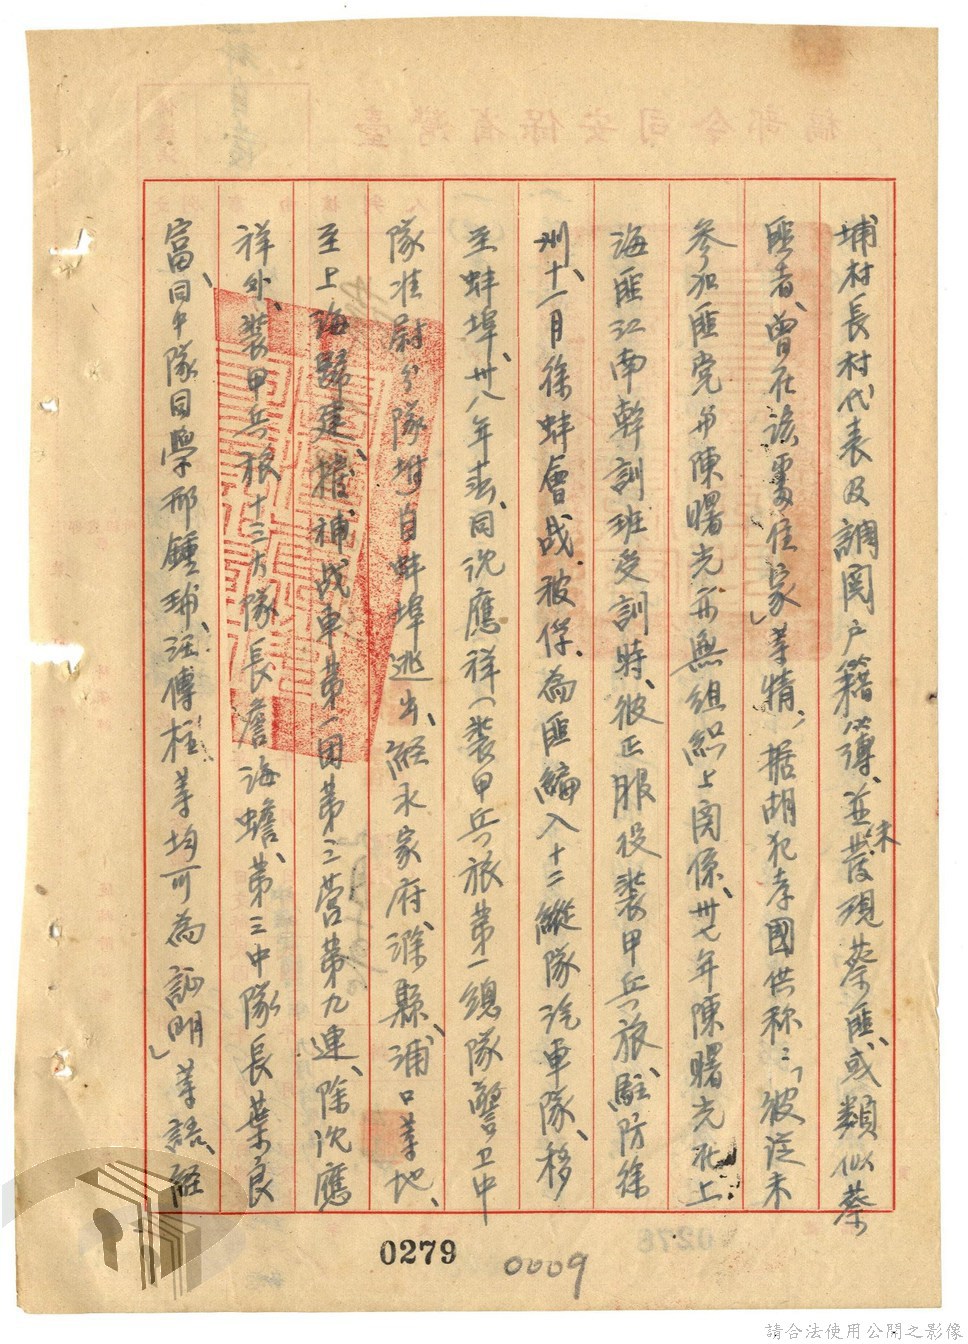 埔村長村代表及調閱戶籍簿、並未發現蔡匪、或類似蔡
匪者、曾在該處住家」等情，据胡犯孝國供称：「彼从未
參加匪党、而陳曙光亦無組织上関係、卅七年陳曙光在上
海匪江南幹訓班受訓時、彼正服役装甲兵旅、駐防徐
州、十一月徐蚌會战被俘、為匪編入十二縱隊汽車隊、移
至蚌埠、卅八年春、同沈應祥（裝甲兵旅第一總隊警卫中
隊准尉分隊坿）自蚌埠逃出、經永家府、滁縣、浦口等地、
至上海歸建、撥補战車第一团第三营第九連、除沈應
祥外、裝甲兵旅十三大隊長詹海蟾、第三中隊長葉良
富、同中隊同學邢鍾珊、汪傳柱、等均可為証明」等語、經
0279
0009
臺灣省保安司令部稿
0278
請合法使用公開之影像